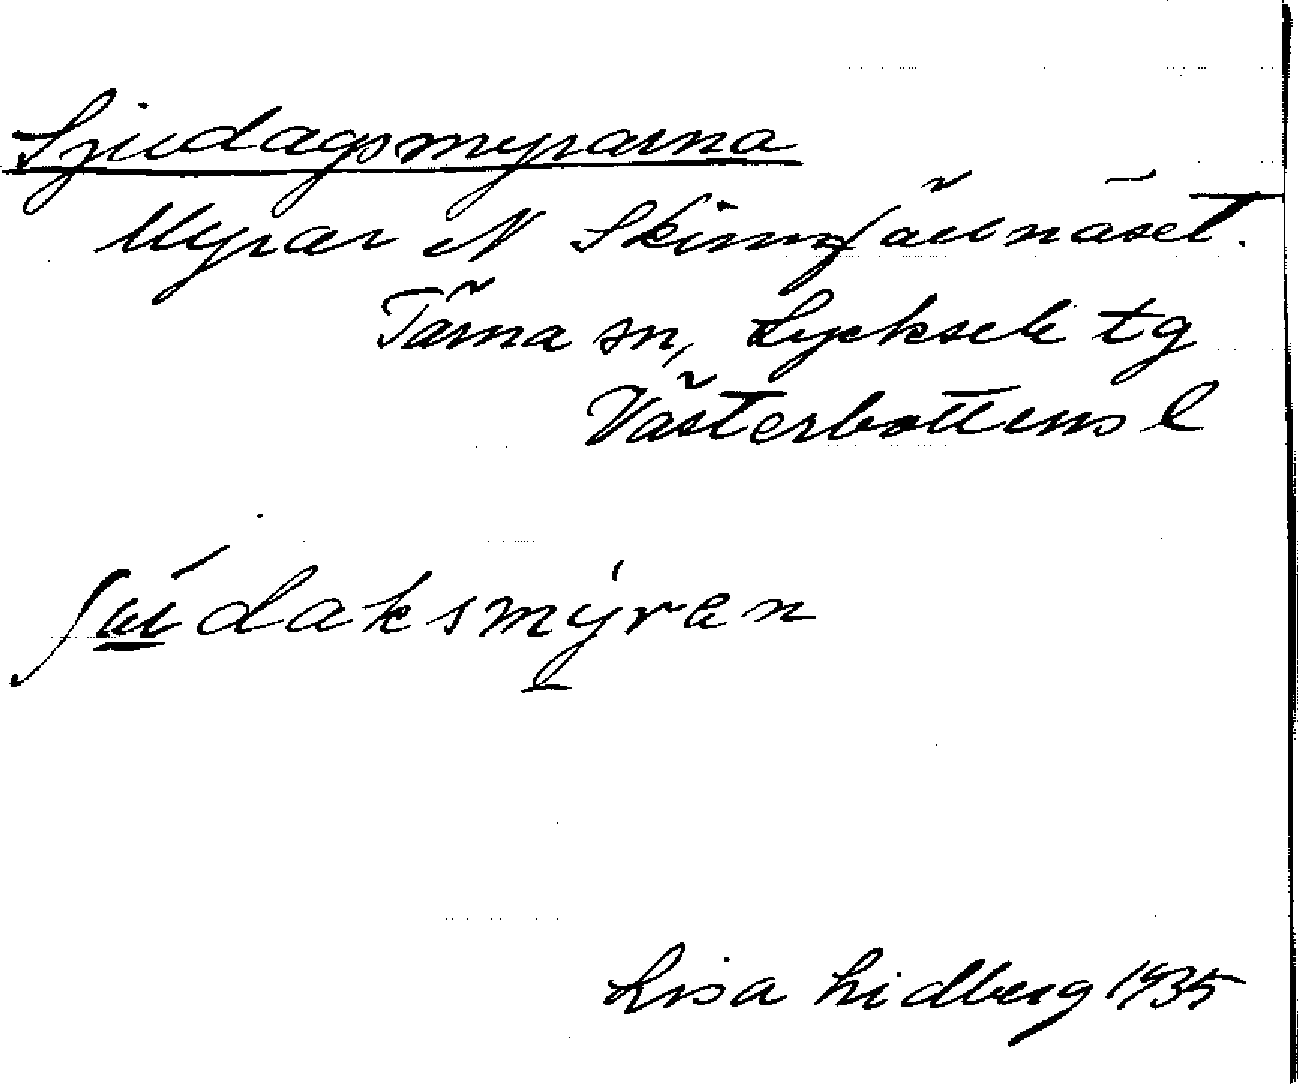 Sjudagsmyrarna
Myrar N Skinnfällnäset.
Tärna sn, Lycksele tg
Västerbottens l
daksmýran
Lisa Lidberg 1935